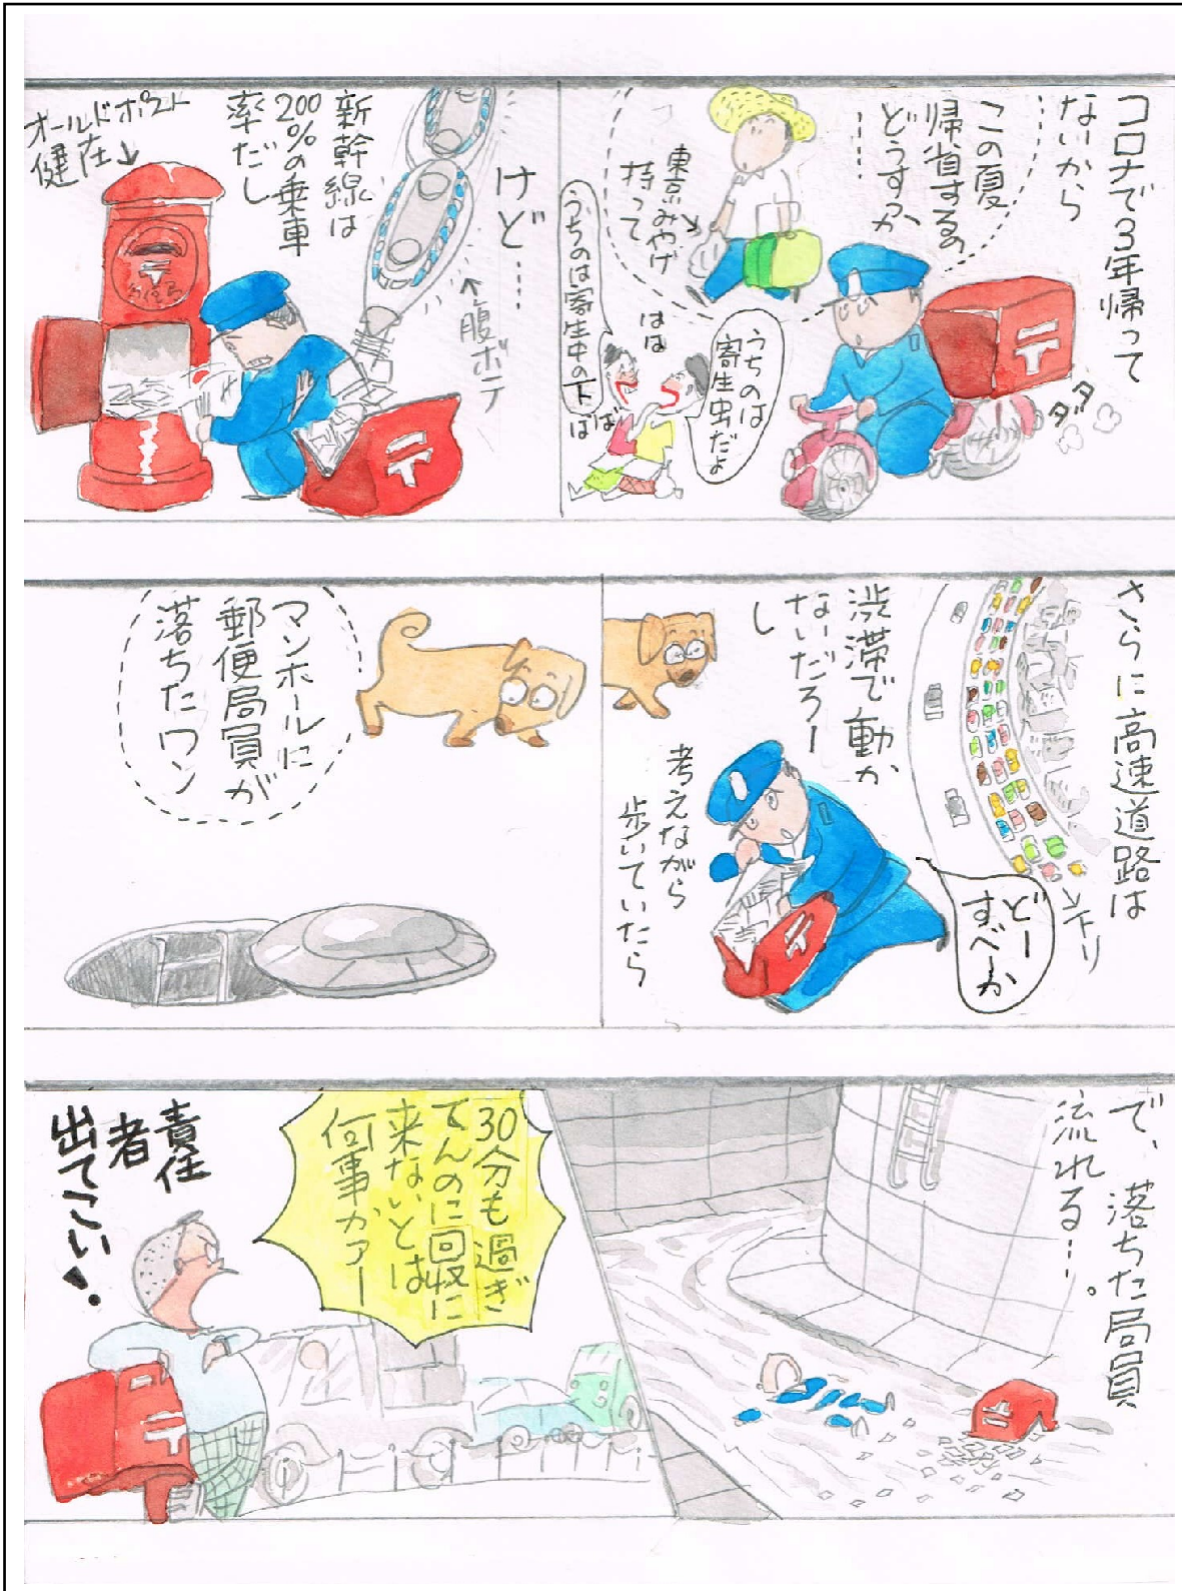 コロナで3年帰って
ないから
この夏
帰省するの
どうすっか
……
東京みやげ
持って
タッタ
うちのは
寄生虫だよ
はは
うちのは寄生中の下
はは
けど…
腹ボテ
新幹線は
200%の乗車
率だし
オールドポスト
健在
〒
〒
〒
さらに高速道路は
渋滞で動か
ないだろー
し
どー
すべーか
考えながら
歩いていたら
〒
マンホールに
郵便局員が
落ちたワン
で、落ちた局員
流れる…。
30分も過ぎ
てんのに回収に
来ないとは
何事かァー
責任
者
出てこい!
〒